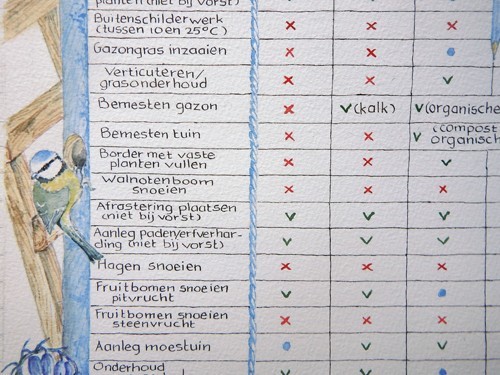 planten (niet bij vorst)
Buitenschilderwerk
(tussen 10 en 25°C)
Gazongras inzaaien
Verticuteren/
grasonderhoud
Bemesten gazon
(kalk)
(organische
Bemesten tuin
(compost
organisch
Border met vaste
planten vullen
Walnotenboom
snoeien
Afrastering plaatsen
(niet bij vorst)
Aanleg paden/erfverhar-
ding (niet bij vorst)
Hagen snoeien
Fruitbomen snoeien
pitvrucht
Fruitbomen snoeien
steenvrucht
Aanleg moestuin
Onderhoud